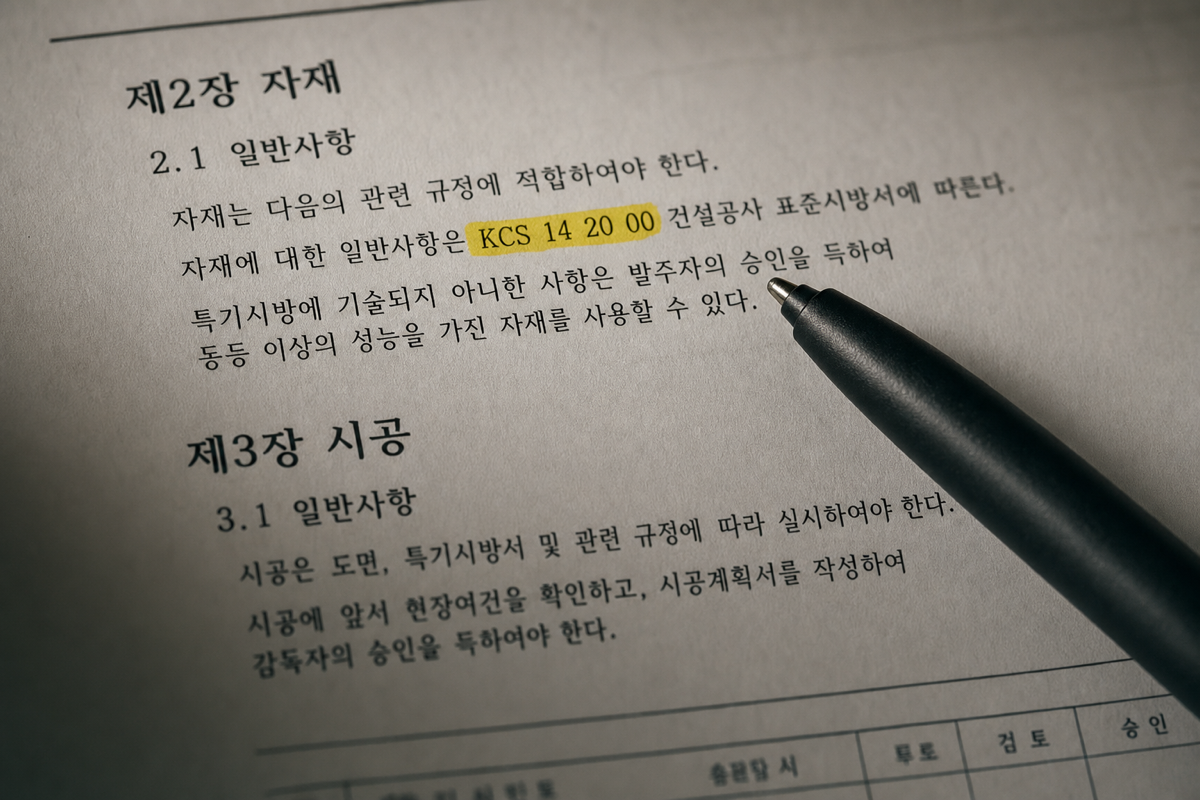 제2장 자재
2.1 일반사항
자재는 다음의 관련 규정에 적합하여야 한다.
자재에 대한 일반사항은 KCS 14 20 00 건설공사 표준시방서에 따른다.
특기시방에 기술되지 아니한 사항은 발주자의 승인을 득하여
동등 이상의 성능을 가진 자재를 사용할 수 있다.
제3장 시공
3.1 일반사항
시공은 도면, 특기시방서 및 관련 규정에 따라 실시하여야 한다.
시공에 앞서 현장여건을 확인하고, 시공계획서를 작성하여
감독자의 승인을 득하여야 한다.
검 토 승 인